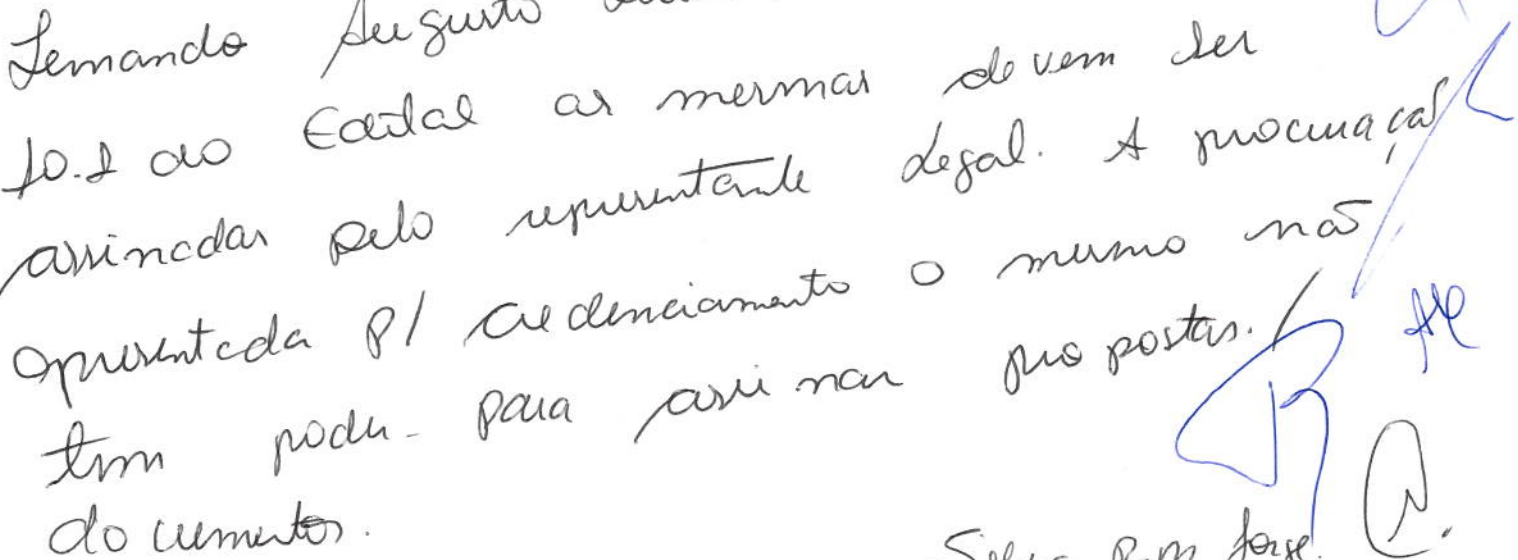 Fernando Augusto
10.1 do Edital as mesmas devem ser
assinadas pelo representante legal. A procuração
apresentada p/ credenciamento o mesmo não
tem poder para assinar propostas. /
documentos.